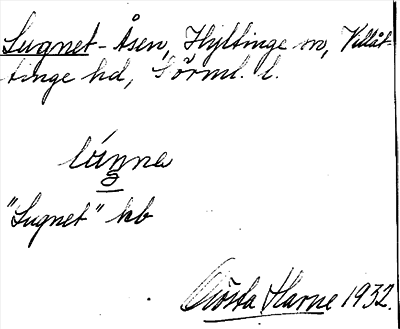 Lugnet-Åsen, Hyltinge sn, Villåt-
tinge hd, Sörml. l.
"Lugnet" kb
Gösta Harne 1932.